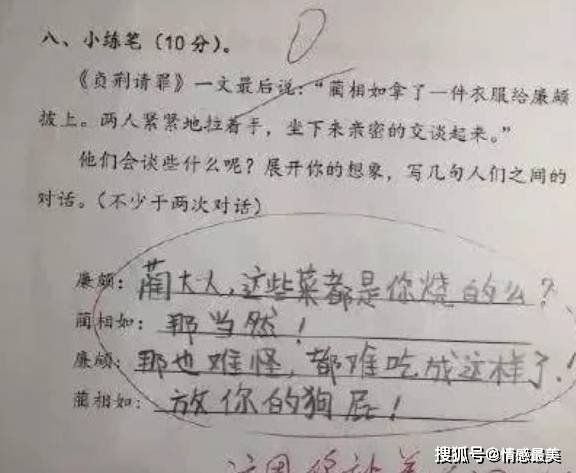 八、小练笔（10分）。
《负荆请罪》一文最后说：“蔺相如拿了一件衣服给廉颇
披上。两人紧紧地拉着手，坐下来亲密的交谈起来。”
他们会谈些什么呢？展开你的想象，写几句人们之间的
对话。（不少于两次对话）
廉颇：蔺大人，这些菜都是你烧的么？
蔺相如：那当然！
廉颇：那也难怪，都难吃成这样了！
蔺相如：放你的狗屁！
搜狐号@情感最美